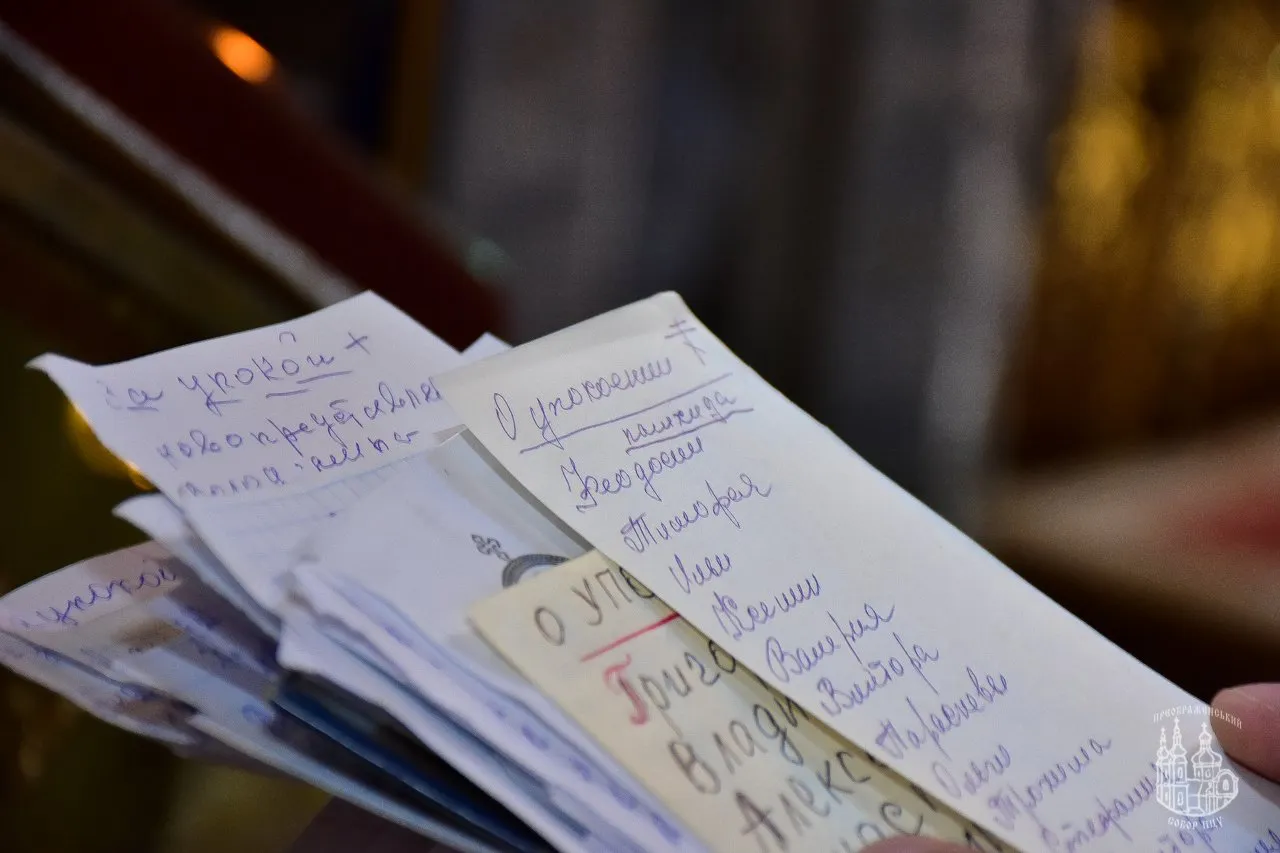 За упокой +
новопреставлен
О упокоении
панихида
Феодосии
Тимофея
Ильи
Ксении
Валерия
Виктора
Параскевы
Ольги
Трохима
Стефании
О УПО
Григо
Влади
Алекс
упокой
ПРЕОБРАЖЕНСЬКИЙ
СОБОР ПЦУ